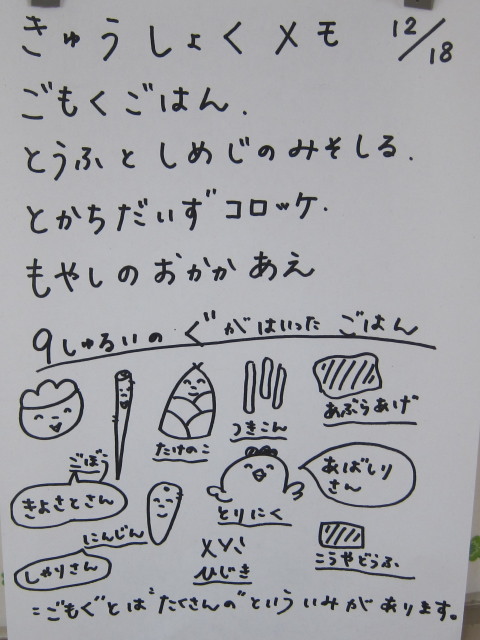 きゅうしょくメモ 12/18
ごもくごはん.
とうふとしめじのみそしる.
とかちだいずコロッケ.
もやしのおかかあえ
9しゅるいのぐがはいったごはん
たけのこ
つきこん
あぶらあげ
ごぼう
きよさとさん
とりにく
あばしりさん
にんじん
しゃりさん
ひじき
こうやどうふ
"ごもく"とは"たくさんの"といういみがあります。